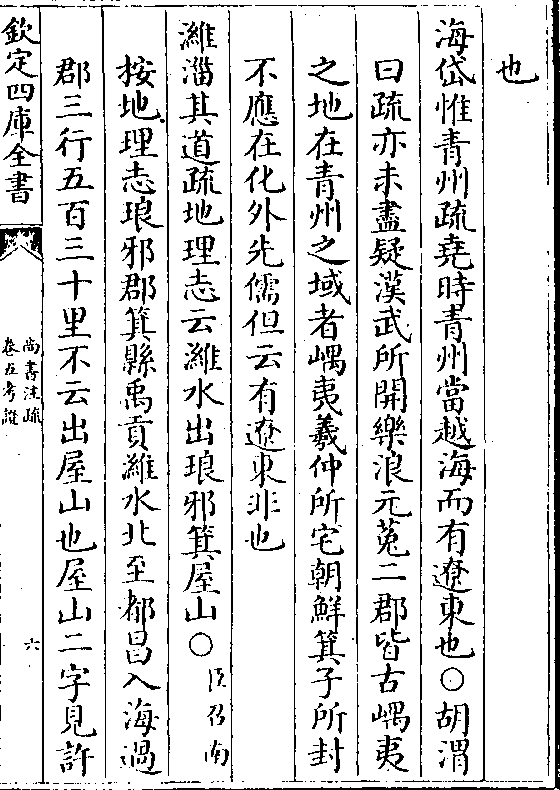 也
海岱惟青州疏堯時青州當越海而有遼東也○胡渭
曰疏亦未盡疑漢武所開樂浪元菟二郡皆古嵎夷
之地在青州之域者嵎夷羲仲所宅朝鮮箕子所封
不應在化外先儒但云有遼東非也
濰淄其道疏地理志云濰水出琅邪箕屋山○臣召南
按地理志琅邪郡箕縣禹貢濰水北至都昌入海過
郡三行五百三十里不云出屋山也屋山二字見許
欽定四庫全書
尚書注疏
卷五考證
六